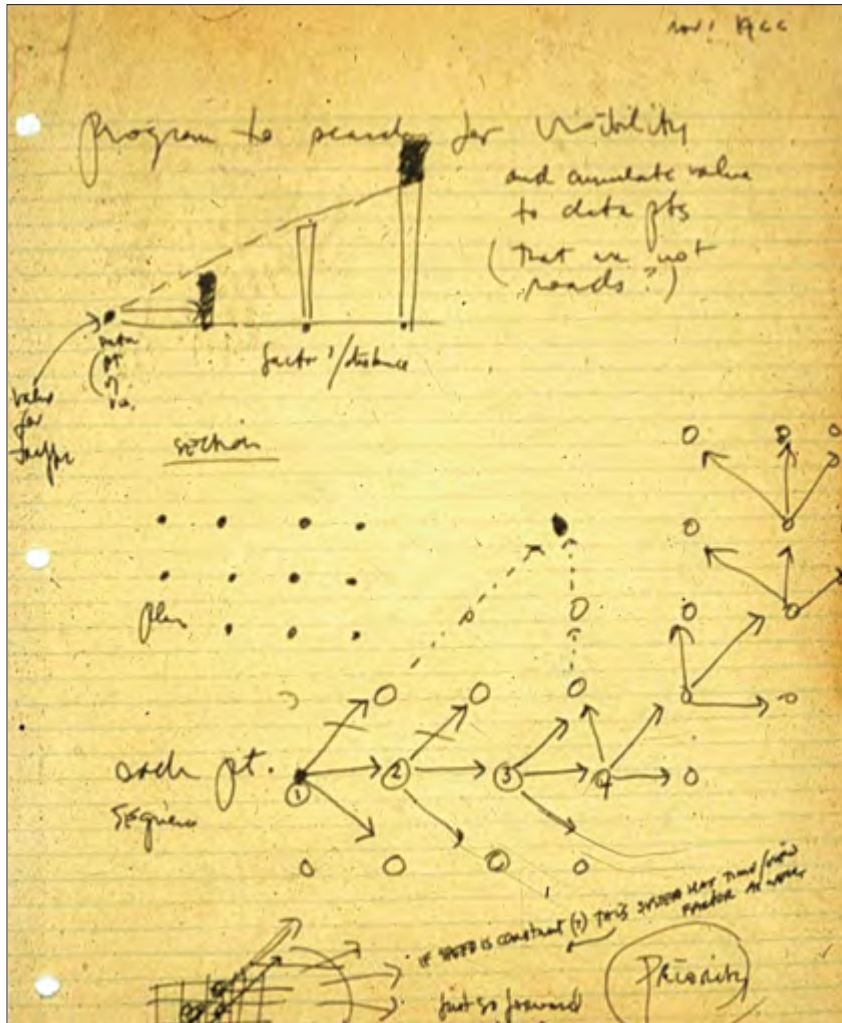 nov 1 1966
program to search for visibility
and cumulate value
to data pts
(that are not
roads?)
data
pt
of
factor 1/distance
value
for
section
plan
each pt.
sequence
1 2 3 4
IF SPEED IS constant (?) THIS SYSTEM HAS TIME/VIEW
FACTOR AS WELL
just go forward
Priority